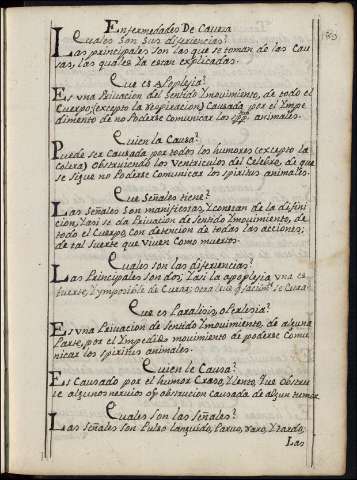 Enfermedades De Caveza
Cuales son sus diferiencias?
Las principales son las que se toman de las Cau
sas, las quales Ya estan explicadas.
Que es Apoplejia?
Es vna Privacion del Sentido Ymovimiento, de todo el
Cuerpo (excepto la respiracion) Causada por el Ympe
dimento de no Poderse Comunicar los sptos animales.
Quien la Causa?
Puede ser Causada por todos los humores (excepto la
Colera) Obstruiendo los Ventriculos del Celebro, de que
se sigue no Poderse Comunicar los spiritus animales.
Que Señales tiene?
Las Señales son manifiestas, Y constan de la defini
cion, Y asi se da Privacion de Sentido Ymovimiento, de
todo el Cuerpo, con detencion de todas las acciones;
de tal suerte que viven Como muertos.
Cuales son las diferencias?
Las Principales son dos, Y asi la apoplejia vna es
fuerte, Ymposible de Curar; otra leve que facilmte se Cura
Que es Paralisis, o Perlesia?
Es vna Privacion de Sentido Ymovimiento, de alguna
Parte, por el Ympedido movimiento de poderse Comu
nicar los spiritus animales.
Quien le Causa?
Es Causado por el humor Craso, Y lento, que obstru
ie algunos nervios o por obstrucion causada de algun humor
Cuales son las Señales?
Las Señales son Pulso languido, Parvo, raro, Y tardo;
Las